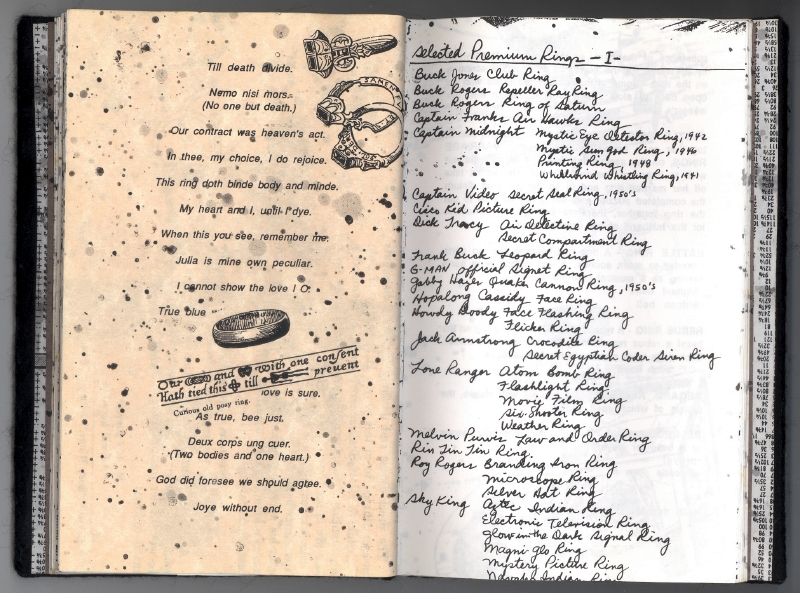 Till death divide.
Nemo nisi mors.
(No one but death.)
Our contract was heaven's act.
In thee, my choice, I do rejoice.
This ring doth binde body and minde.
My heart and I, until I dye.
When this you see, remember me.
Julia is mine own peculiar.
I cannot show the love I O.
True blue
Our and with one consent
Hath tied this till prevent
Curious old posy ring.
love is sure.
As true, bee just.
Deux corps ung cuer.
(Two bodies and one heart.)
God did foresee we should agree.
Joye without end.
Selected Premium Rings -I-
Buck Jones Club Ring
Buck Rogers Repeller Ray Ring
Buck Rogers Ring of Saturn
Captain Franks Air Hawks Ring
Captain Midnight Mystic Eye Detector Ring, 1942
Mystic Sun God Ring, 1946
Printing Ring, 1948
Whirlwind Whistling Ring, 1941
Captain Video Secret Seal Ring, 1950's
Cisco Kid Picture Ring
Dick Tracy Air Detective Ring
Secret Compartment Ring
Frank Buck Leopard Ring
G-MAN official Signet Ring
Gabby Hayes Quaker Cannon Ring, 1950's
Hopalong Cassidy Face Ring
Howdy Doody Face Flashing Ring
Flicker Ring
Jack Armstrong Crocodile Ring
Secret Egyptian Coder Siren Ring
Lone Ranger Atom Bomb Ring
Flashlight Ring
Movie Film Ring
Six-Shooter Ring
Weather Ring
Melvin Purvis Law and Order Ring
Rin Tin Tin Ring
Roy Rogers Branding Iron Ring
Microscope Ring
Silver Hat Ring
Sky King Aztec Indian Ring
Electronic Television Ring
Glow-in-the Dark Signal Ring
Magni-glo Ring
Mystery Picture Ring
Navaho Indian Ring